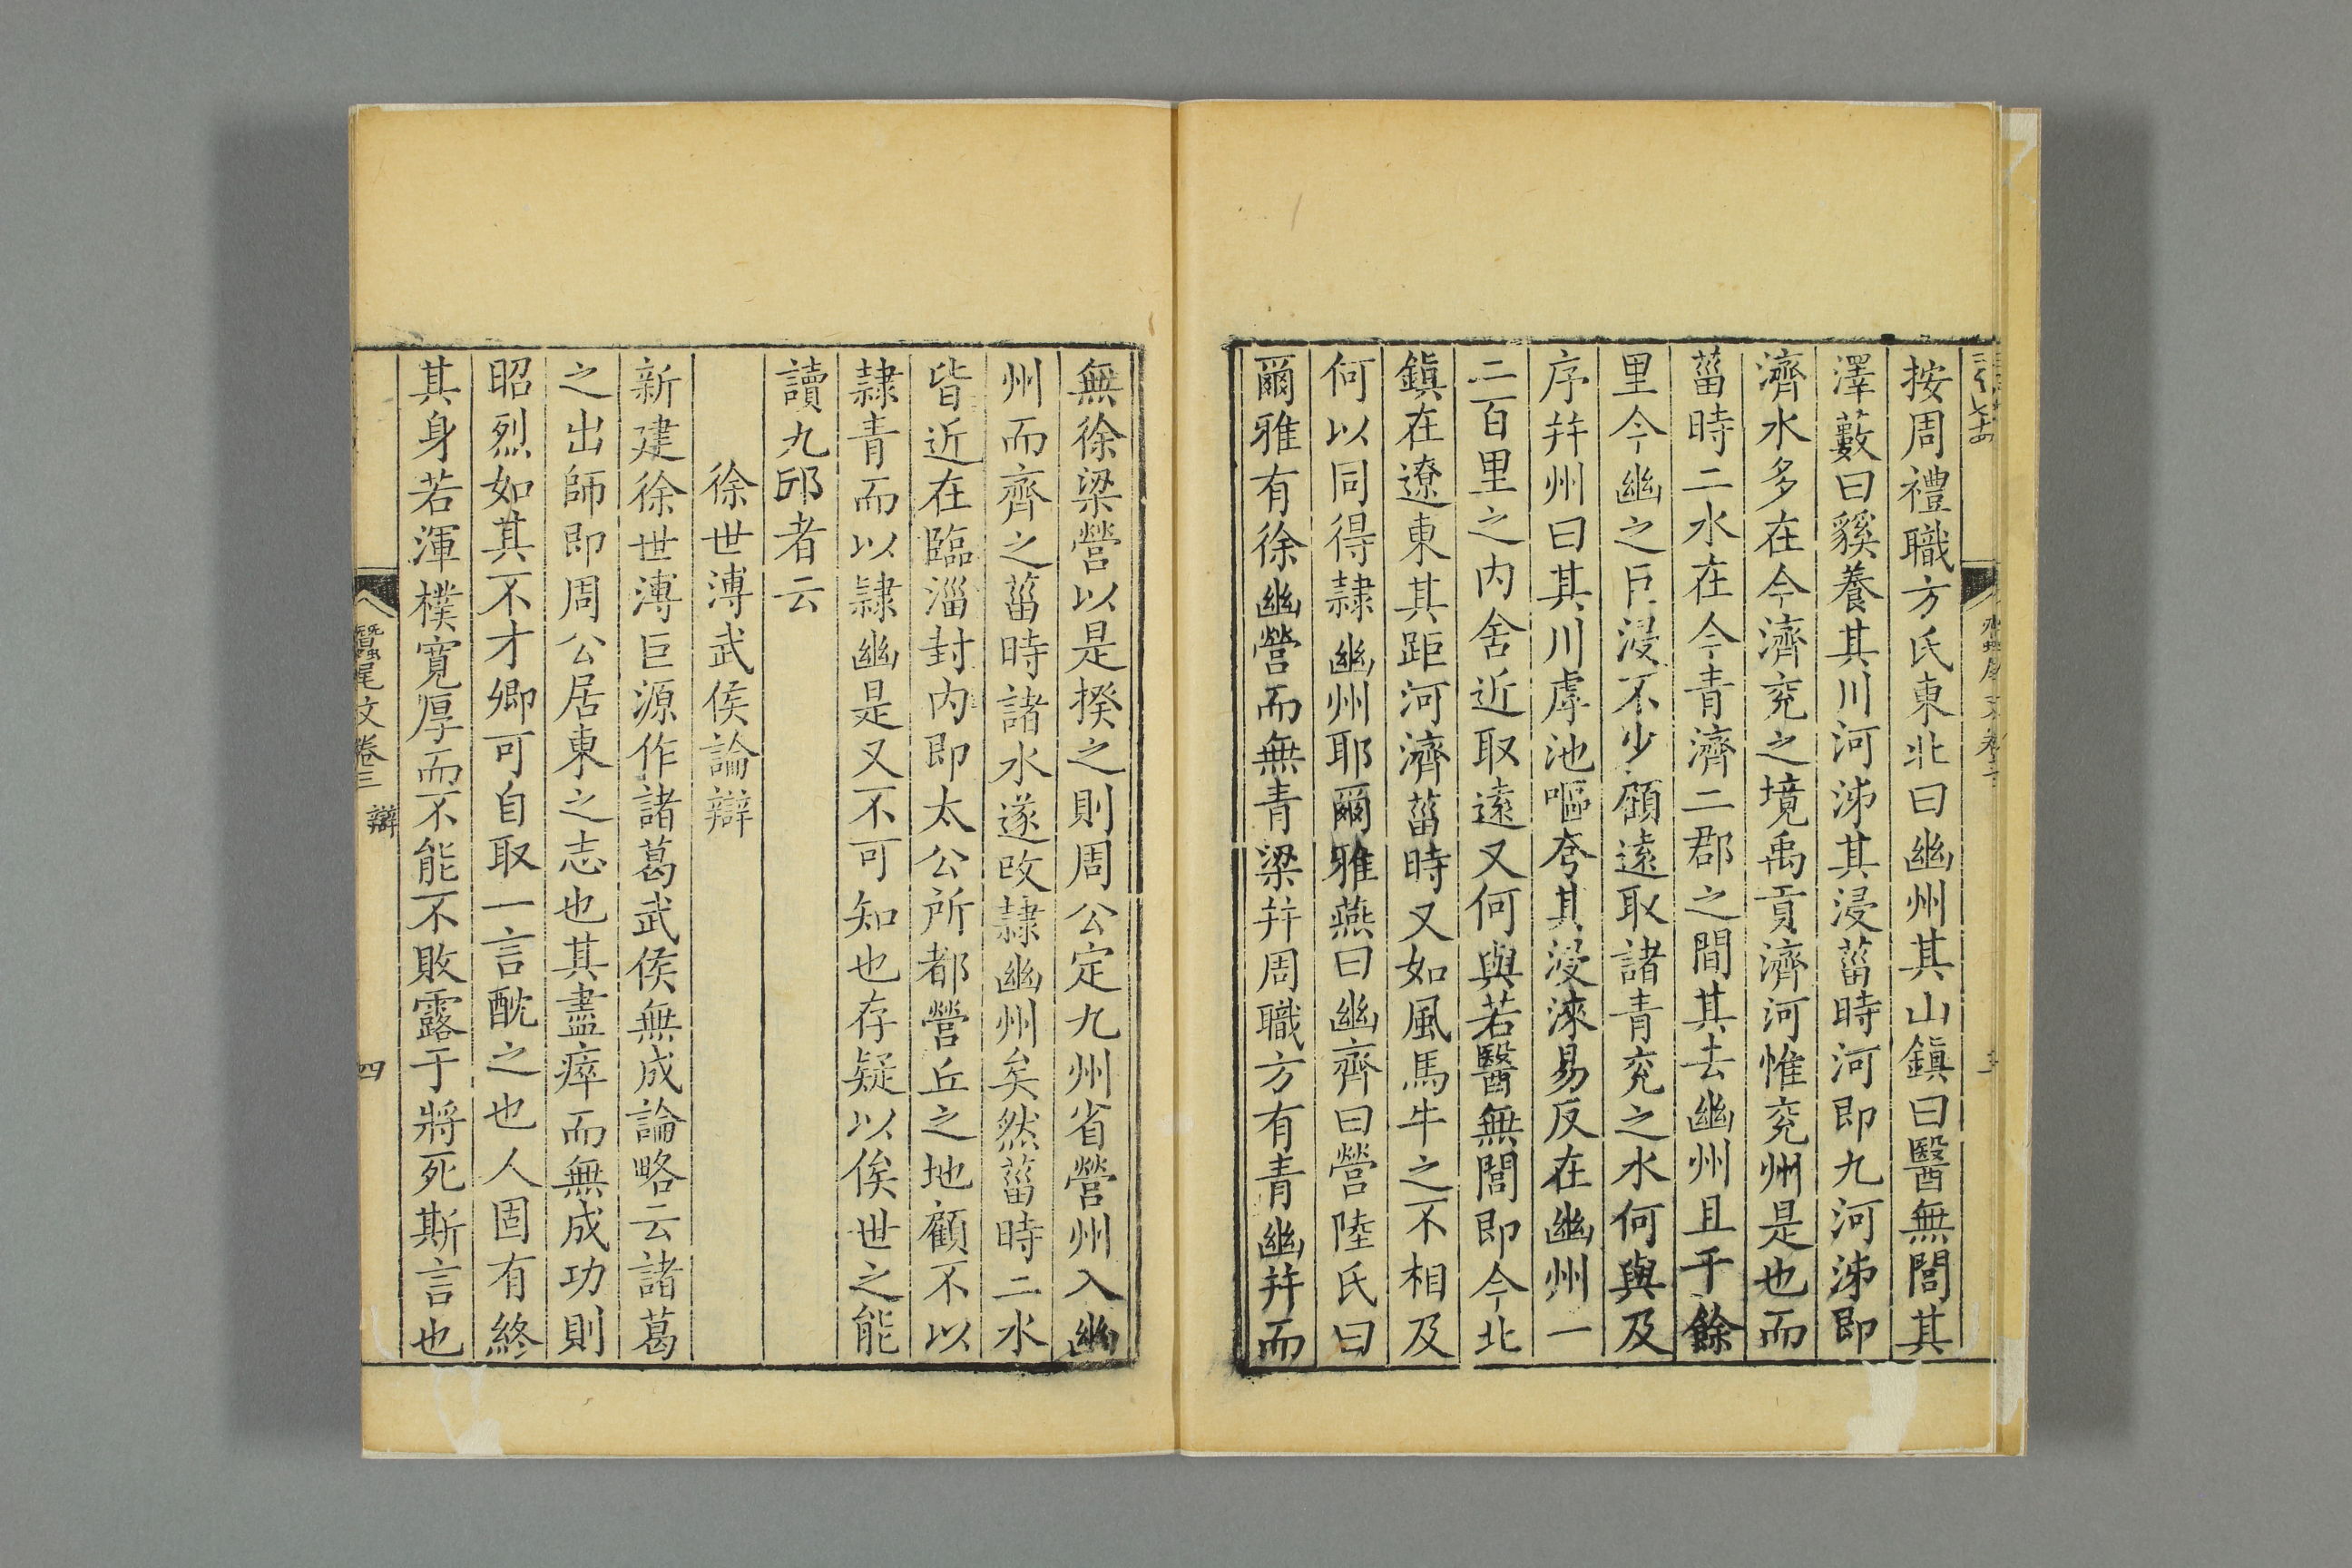 按周禮職方氏東北曰幽州其山鎭曰醫無閭其
澤藪曰豯養其川河泲其浸菑時河即九河泲即
濟水多在今濟兖之境禹貢濟河惟兖州是也而
菑時二水在今青濟二郡之間其去幽州且千餘
里今幽之巨浸不少顧遠取諸青兖之水何與及
序幷州曰其川虖池嘔夸其浸淶易反在幽州一
二百里之内舍近取遠又何與若醫無閭即今北
鎭在遼東其距河濟菑時又如風馬牛之不相及
何以同得隷幽州耶爾雅燕曰幽齊曰營陸氏曰
爾雅有徐幽營而無青梁幷周職方有青幽幷而
無徐梁營以是揆之則周公定九州省營州入幽
州而齊之菑時諸水遂改隷幽州矣然菑時二水
皆近在臨淄封内即太公所都營丘之地顧不以
隷青而以隷幽是又不可知也存疑以俟世之能
讀九邱者云
徐世溥武侯論辯
新建徐世溥巨源作諸葛武侯無成論略云諸葛
之出師即周公居東之志也其盡瘁而無成功則
昭烈如其不才卿可自取一言酖之也人固有終
其身若渾樸寛厚而不能不敗露于將死斯言也
蠶尾文卷三 辯 四